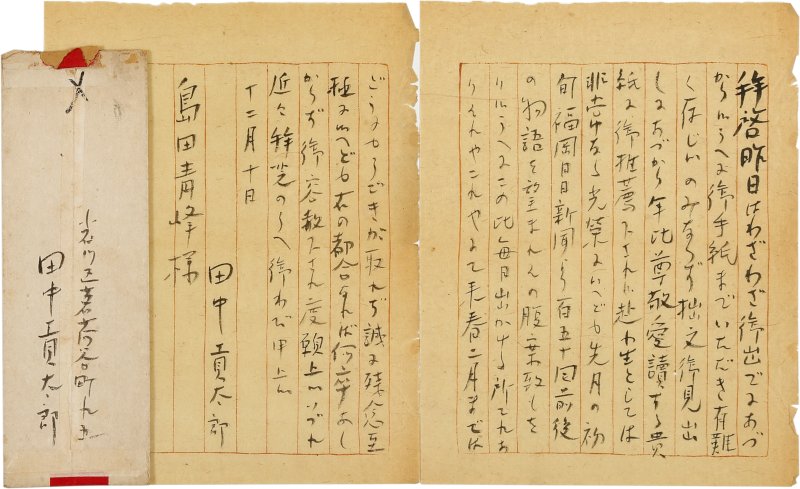 拝啓 昨日はわざわざ御出でにあづ
からいうへに御手紙までいただき有難
く存じいのみならず拙文御見出
しにあづから年比尊敬愛読する貴
紙に御推薦下され
非常なる光栄にいへども先月の初
旬福岡日日新聞より百五十回前後
の物語を
いうへにこの比毎日出かける所
それやこれやにて来春二月までは
どうにもうごきが取れず誠に残念至
極にいへども右の都合なれば何卒あし
からず御容赦下され度願上いいづれ
近々拝芝のうへ御わび申上い
十二月十日
田中貢太郎
島田青峰様
小石川区茗荷谷町九五
田中貢太郎